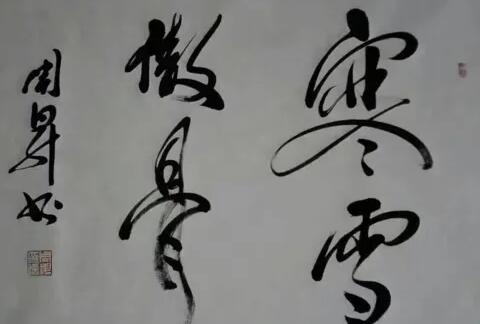 寒雪
傲骨
周昇书